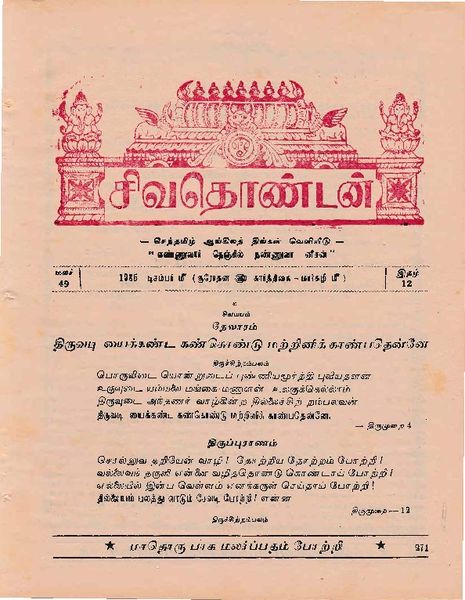 சிவதொண்டன்
— செந்தமிழ் ஆங்கிலத் திங்கள் வெளியீடு —
"கண்ணுவார் நெஞ்சில் நண்ணுவா னீசன்"
மலர் 49
1985 டிசம்பர் மீ (குரோதன ஞு கார்த்திகை - மார்கழி மீ)
இதழ் 12
உ
சிவமயம்
தேவாரம்
திருவடி யைக்கண்ட கண்கொண்டு மற்றினிக் காண்பதென்னே
திருச்சிற்றம்பலம்
பொருவிடை யொன்றுடைப் புண்ணியமூர்த்தி புலியதளன
உருவுடை யம்மலை மங்கை மணாளன் உலகுக்கெல்லாம்
திருவுடை அந்தணர் வாழ்கின்ற தில்லைச்சிற் றம்பலவன்
திருவடி யைக்கண்ட கண்கொண்டு மற்றினிக் காண்பதென்னே.
— திருமுறை 4
திருப்புராணம்
சொல்லுவ தறியேன் வாழி! தோற்றிய தோற்றம் போற்றி!
வல்லைவந் தருளி என்னை வழித்தொண்டு கொண்டாய் போற்றி!
எல்லையில் இன்ப வெள்ளம் எனக்கருள் செய்தாய் போற்றி!
தில்லையம் பலத்து வாடும் சேவடி போற்றி! என்ன
திருமுறை—12
திருச்சிற்றம்பலம்
★ மாதொரு பாக மலர்ப்பதம் போற்றி ★ 271